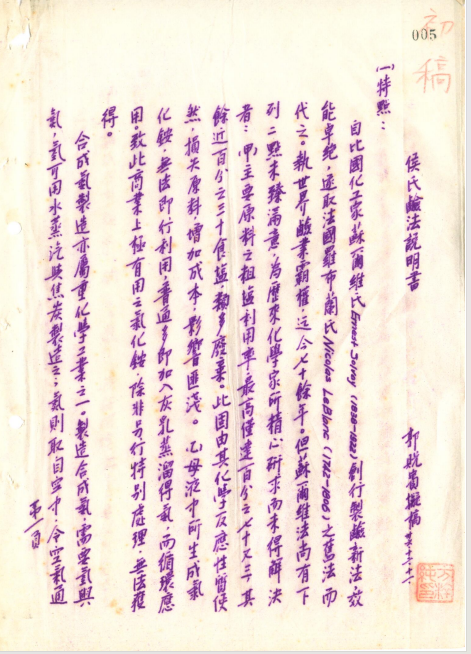 初稿
005
侯氏鹼法說明書
郭鋭蓀擬稿
(一)特點:
自比國化學家蘇爾維氏Ernest Solvay (1838-1922)創行製鹼新法效
能卓絶,遂取法國羅布蘭氏Nicolas LeBlanc (1742-1806)之舊法而
代之。執世界鹼業霸權,迄今七十餘年。但蘇爾維法尚有下
列二點未臻滿意,為歷來化學家所精心研求而未得解決
者:甲、主要原料之粗鹽利用率最高僅達百分之七十又三其
餘近百分之三十食鹽類多廢棄。此固由其化學反應性質使
然,損失原料增加成本,影響匪淺。乙、母液中所生成氯
化銨,無法即行利用,普通多即加入灰乳蒸溜得氨,而循環應
用。致此商業上極有用之氯化銨除非另行特别處理,無法獲
得。
合成氨製造亦屬重化學工業之一。製造合成氨,需要氫與
氮,氫可用水蒸汽與焦炭製造之,氮則取自空中,令空氣通
第一頁